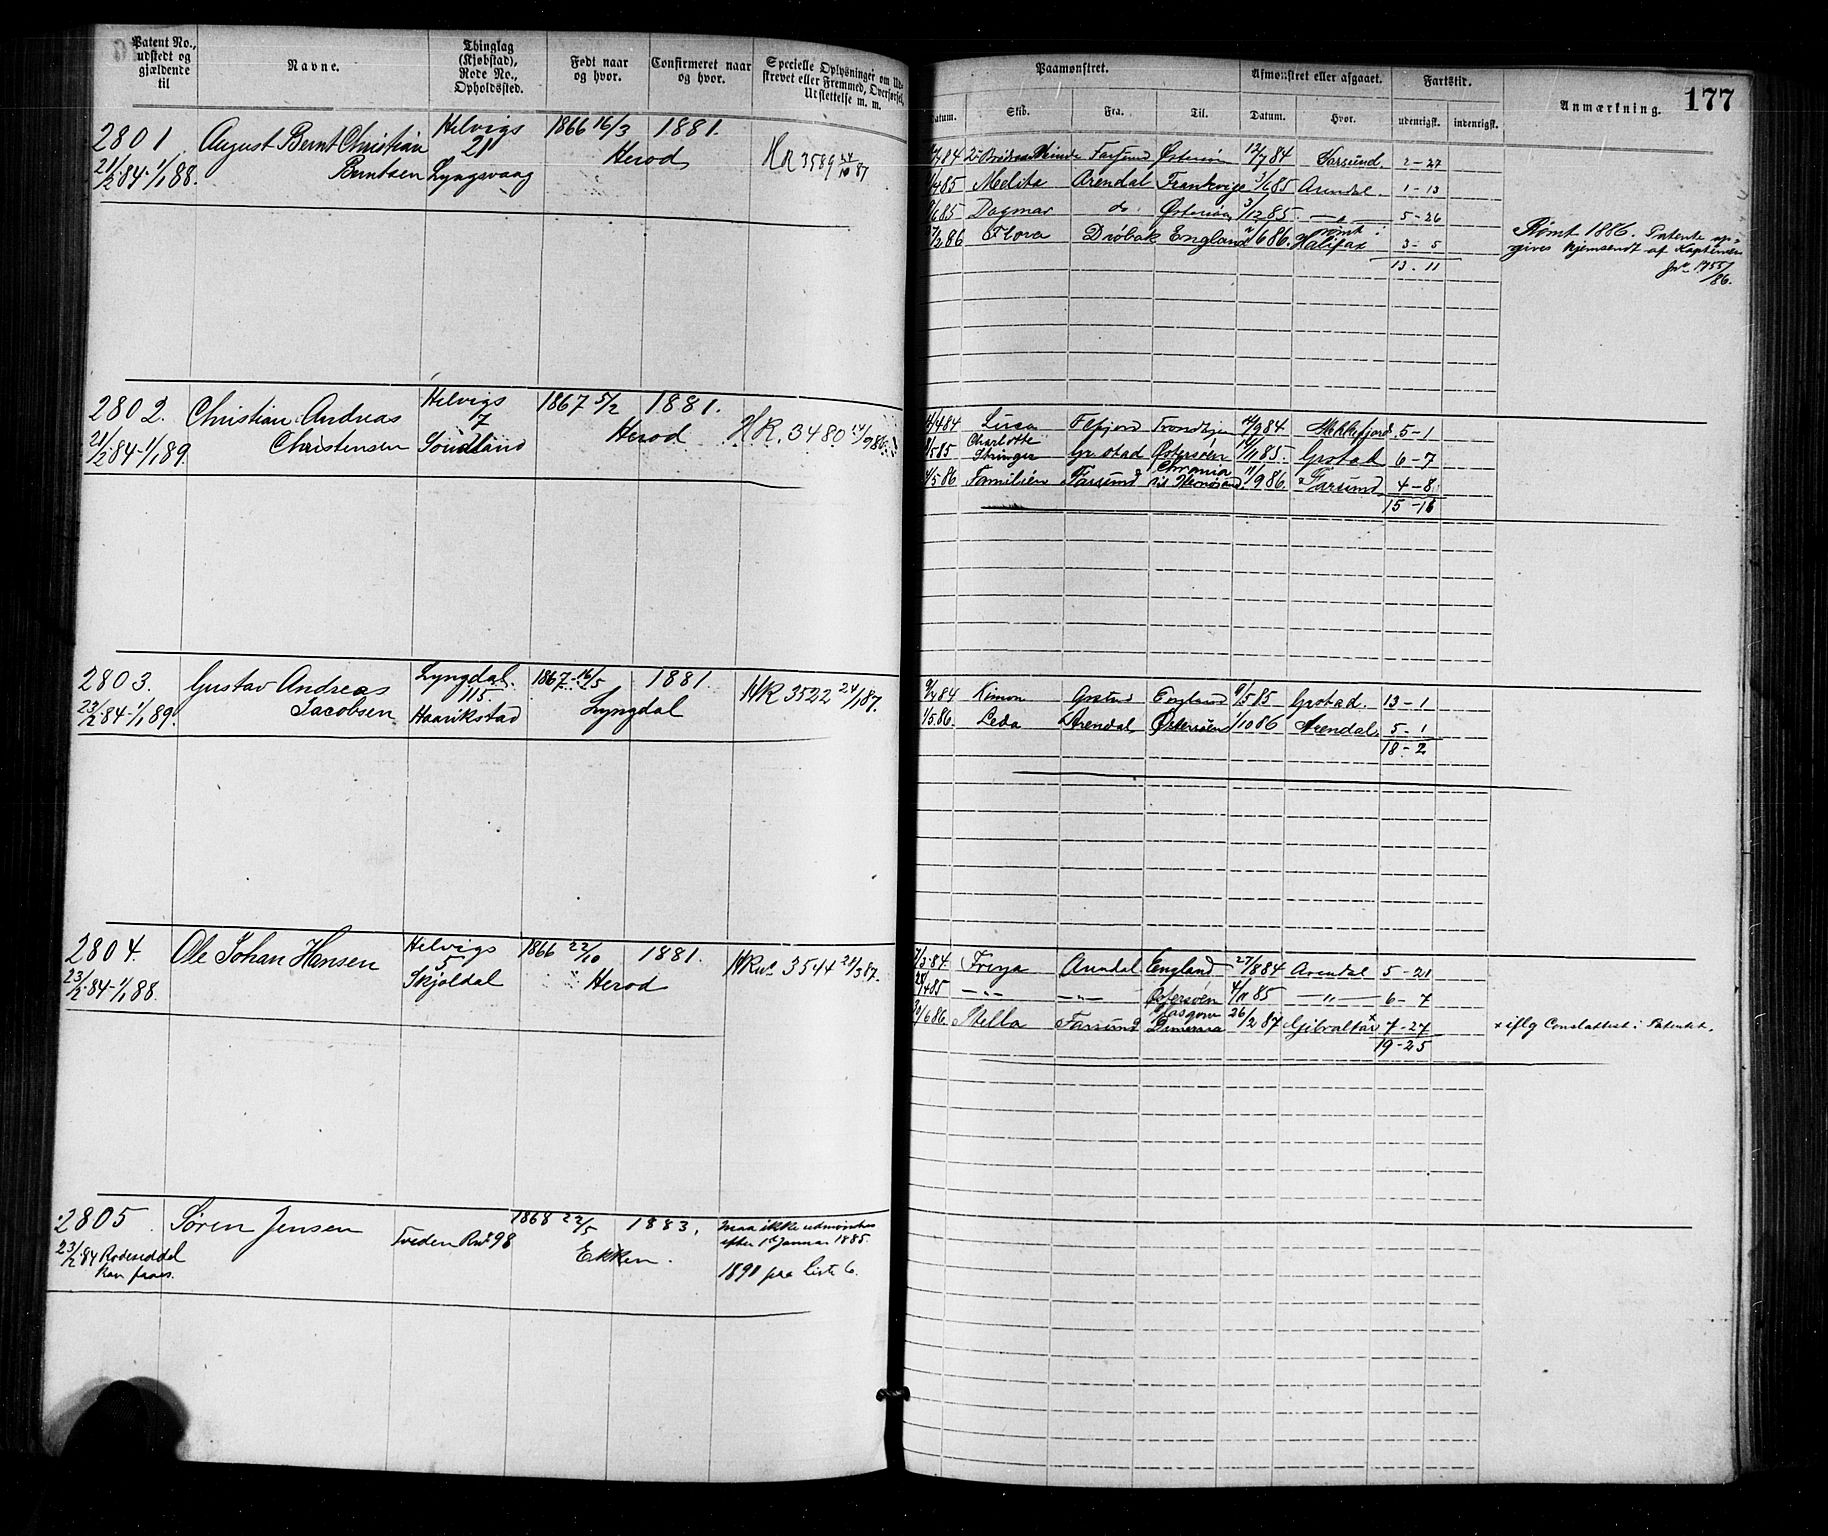 177
Patent No., udstedt og gjældende til
Navne.
Thinglag (Kjøbstad), Rode No., Opholdssted.
Født naar og hvor.
Confirmeret naar og hvor.
Specielle Oplysninger om Ud-
strevet eller Fremmed, Overførsel,
Udslettelse m. m.
Paamønstret.
Afmønstret eller afgaaet.
Fartstid.
Anmærkning.
Datum. Skib. Fra. Til. Datum. Hvor. udenrigsk. indenrigsk.
2801 August Bernt Christian Helvigs 1866 16/3 1881.
21/2 84-1/1 88. Berntsen 21 Herod HR 3589 24/10 87
Lyngsvaag
84 Farsund Østersøen 12/7 84 Farsund 2-27
85 Melita Arendal Frankrige 3/6 85 Arendal 1-13
6/85 Dagmar do. Østersøen 3/12 85 — " — 5-26
2/86 Flora Drøbak England 6/86 rømt i Halifax 3-5
13-11
Rømt 1886. Patentet op-
gives hjemsendt af Kapteinen
Jnr 1755/86.
2802. Christian Andreas Helvigs 1867 5/2 1881.
21/2 84-1/1 89. Christensen 7 Herod HR. 3480 86
Soudland
4/84 Luca 9/84 5-1
5/85 Charlotte Stringer Grstad Østersøen 11/85. Grstad 6-7
5/86 Familien Farsund Chrania 11/9 86. Farsund 4-8
15-16
2803. Gustav Andreas Lyngdal. 1867 16/5 1881.
23/2 84-1/1 89. Jacobsen 115 Lyngdal HR 3522 24/1 87.
Haarikstad
84 Kimon Grstad England 9/5 85 Grstad. 13-1
1/5 86. Leda Arendal Østersøen 1/10 86 Arendal. 5-1
18-2
2804. Ole Johan Hansen Helvigs 1866 22/10 1881.
23/2 84-1/1 88. 5 Herod HR no 3544 3/87.
Skjoldal
84 Freya Arendal England 27/8 84 Arendal 5-21
4/85 — " — — " — Østersøen 4/11 85 — " — 6-7
6/86. Stella Farsund Glasgow Demerara 26/2 87 Gibraltar x 7-27
19-25
x iflg Conslattest i Patentet.
2805 Søren Jensen 1868 22/5 1883.
23/2 84 Rodeseddel Tveden Rno 98 Ekken.
kan faaes.
maa ikke udmønstres
efter 1ste Januar 1885.
1890 paa Liste 6.